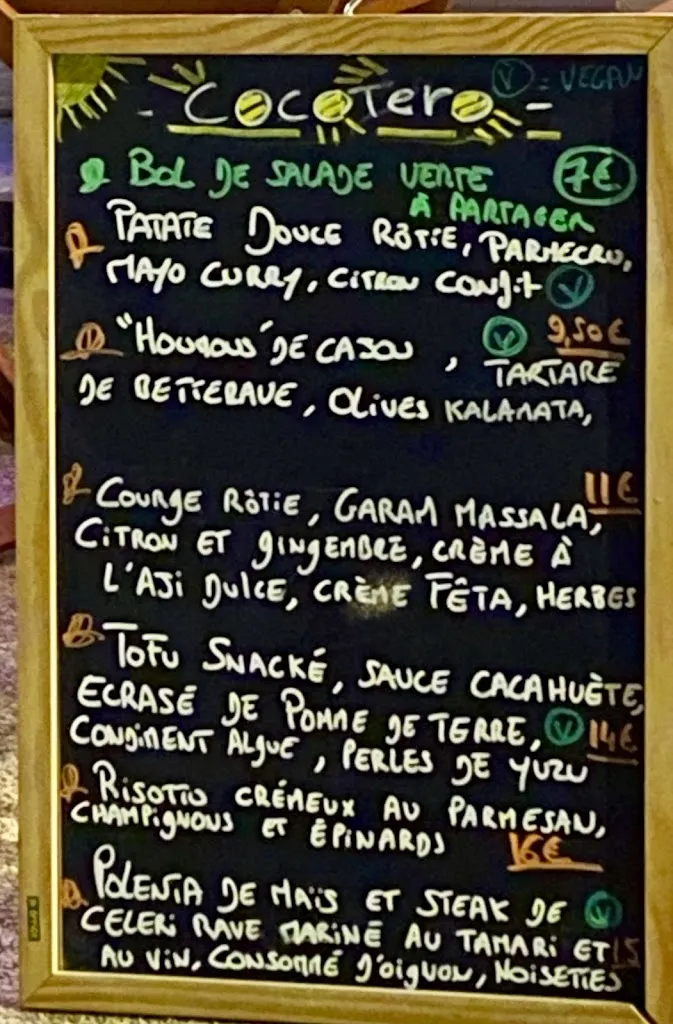 V = VEGAN
- COCOTERO -
BOL DE SALADE VERTE 7€
À PARTAGER
PATATE DOUCE RÔTIE, PARMECRU,
MAYO CURRY, CITRON CONFIT V
"HOUMOUS" DE CAJOU , V 9,50€
TARTARE
DE BETTERAVE, OLIVES KALAMATA,
11€
COURGE RÔTIE, GARAM MASSALA,
CITRON ET GINGEMBRE, CRÈME À
L'AJI DULCE, CRÈME FÊTA, HERBES
TOFU SNACKÉ, SAUCE CACAHUÈTE,
ECRASÉ DE POMME DE TERRE, V 14€
CONDIMENT ALGUE, PERLES DE YUZU
RISOTTO CRÉMEUX AU PARMESAN,
CHAMPIGNONS ET ÉPINARDS 16€
POLENTA DE MAÏS ET STEAK DE V
CELERI RAVE MARINÉ AU TAMARI ET 15
AU VIN, CONSOMMÉ D'OIGNON, NOISETTES